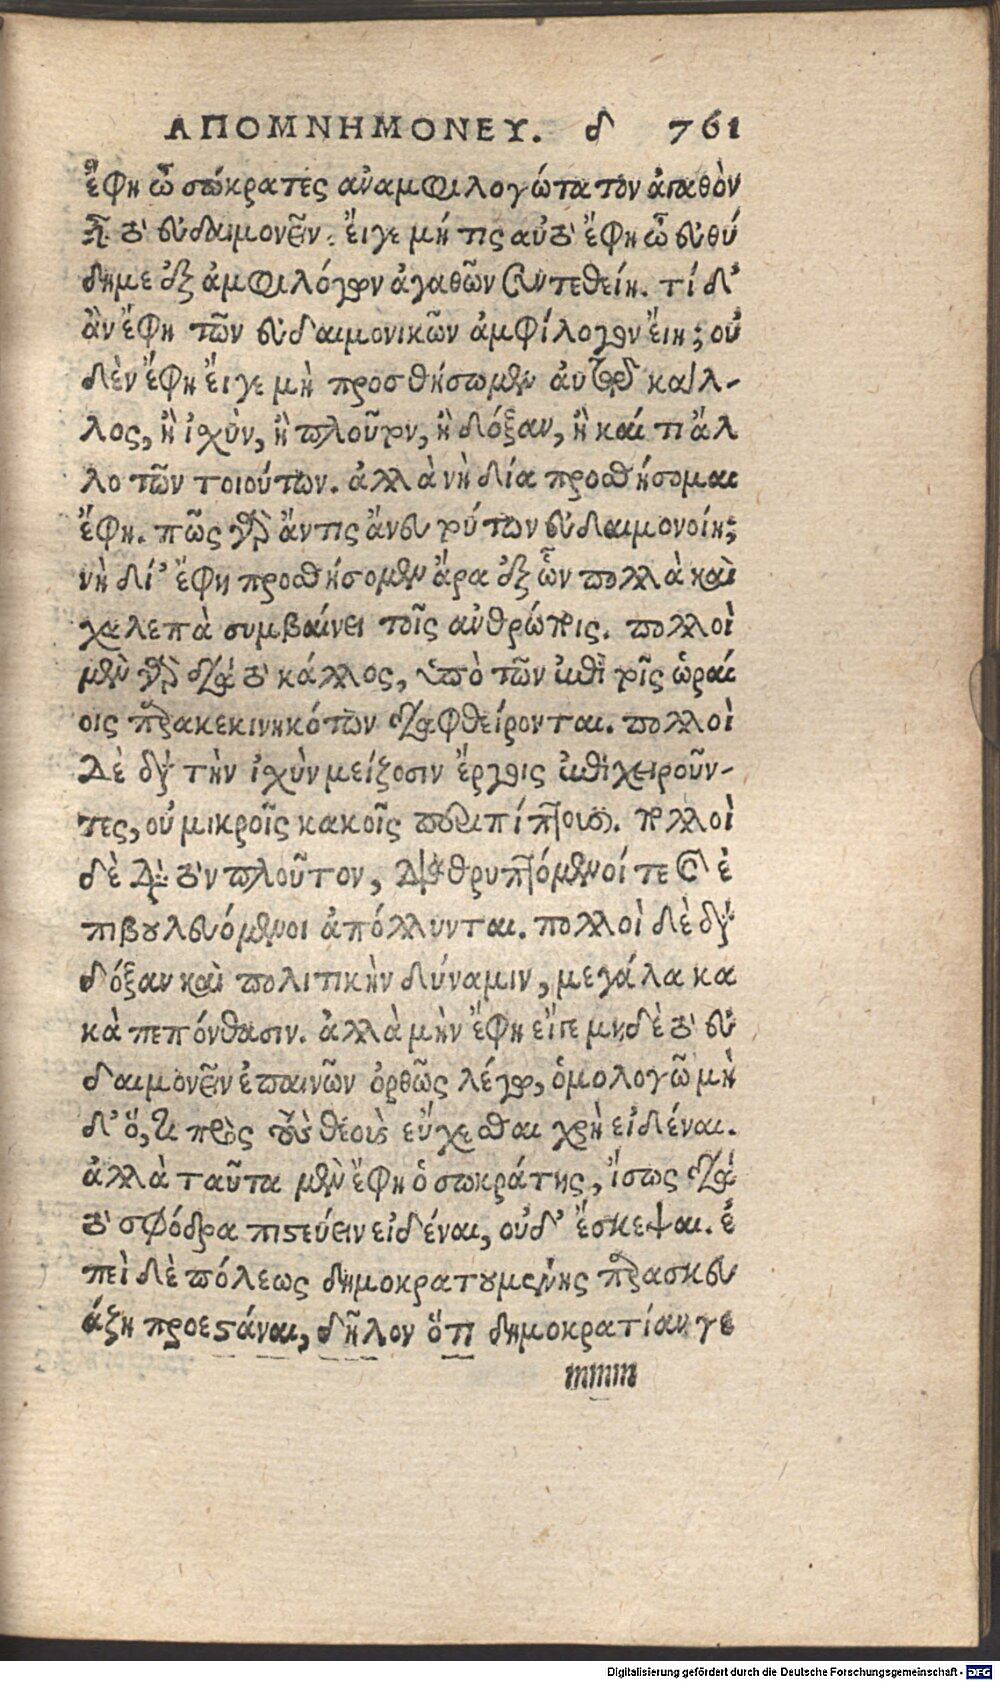 ΑΠΟΜΝΗΜΟΝΕΥ. δ 761
ἔφη ὦ σώκρατες ἀναμφιλογώτατον ἀγαθὸν
εἶναι τὸ εὐδαιμονεῖν. εἴγε μή τις αὐτὸ ἔφη ὦ εὐθύ
δημε ἐξ ἀμφιλόγων ἀγαθῶν συντεθείη. τί δ'
ἂν ἔφη τῶν εὐδαιμονικῶν ἀμφίλογον εἴη; οὐ
δὲν ἔφη εἴγε μὴ προσθήσωμεν αὐτῷ κάλ-
λος, ἢ ἰχὺν, ἢ πλοῦτον, ἢ δόξαν, ἢ καί τι ἄλ
λο τῶν τοιούτων. ἀλλὰ νὴ δία προσθήσομαι
ἔφη. πῶς γὰρ ἄν τις ἄνευ τούτων εὐδαιμονοίη;
νὴ δί' ἔφη προσθήσομεν ἄρα ἐξ ὧν πολλὰ καὶ
χαλεπὰ συμβαίνει τοῖς ἀνθρώποις. πολλοὶ
μὲν γὰρ διὰ τὸ κάλλος, ὑπὸ τῶν ἐπὶ τοῖς ὡραί
οις παρακεκινηκότων διαφθείρονται. πολλοὶ
δὲ διὰ τὴν ἰχὺν μείζοσιν ἔργοις ἐπιχειροῦν-
τες, οὐ μικροῖς κακοῖς περιπίπτουσι. πολλοὶ
δὲ διὰ τὸν πλοῦτον, διαθρυπτόμενοί τε καὶ ἐ
πιβουλευόμενοι ἀπόλλυνται. πολλοὶ δὲ διὰ
δόξαν καὶ πολιτικὴν δύναμιν, μεγάλα κα
κὰ πεπόνθασιν. ἀλλὰ μὴν ἔφη εἴγε μηδὲ τὸ εὐ
δαιμονεῖν ἐπαινῶν ὀρθῶς λέγω, ὁμολογῶ μὴ
δ' ὅ,τι πρὸς τοὺς θεοὺς εὔχεσθαι χρὴ εἰδέναι.
ἀλλὰ ταῦτα μὲν ἔφη ὁ σωκράτης, ἴσως διὰ
τὸ σφόδρα πιστεύειν εἰδέναι, οὐδ' ἔσκεψαι. ἐ
πεὶ δὲ πόλεως δημοκρατουμένης παρασκευ
άζῃ προεστάναι, δῆλον ὅτι δημοκρατίαν γε
mmm
Digitalisierung gefördert durch die Deutsche Forschungsgemeinschaft - DFG